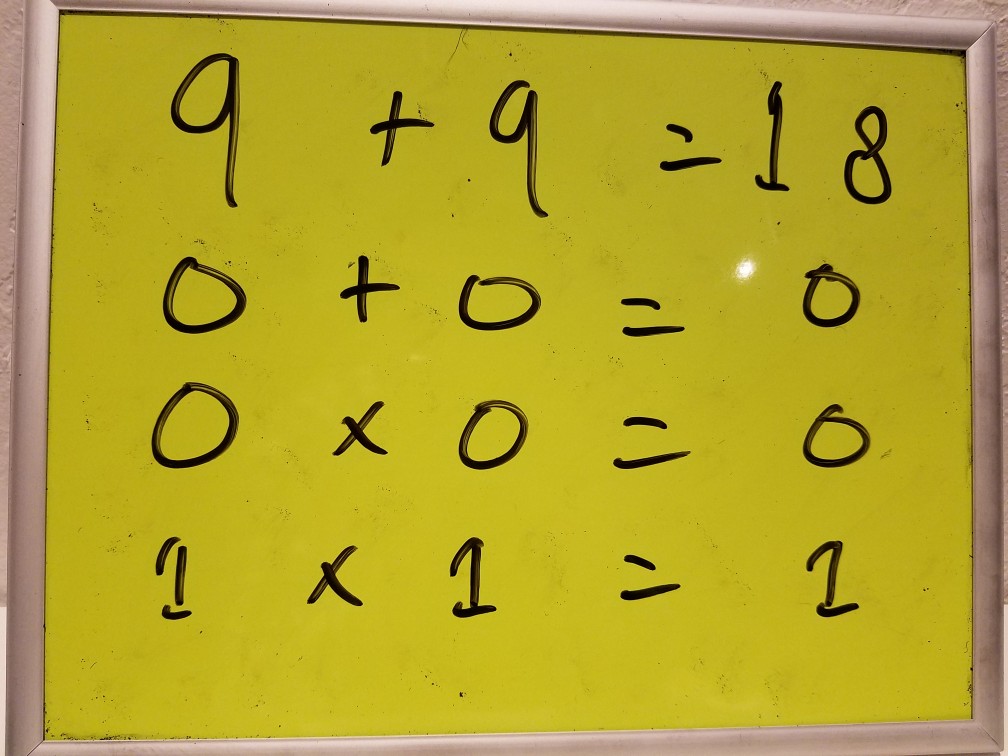 9 + 9 = 18
0 + 0 = 0
0 x 0 = 0
1 x 1 = 1